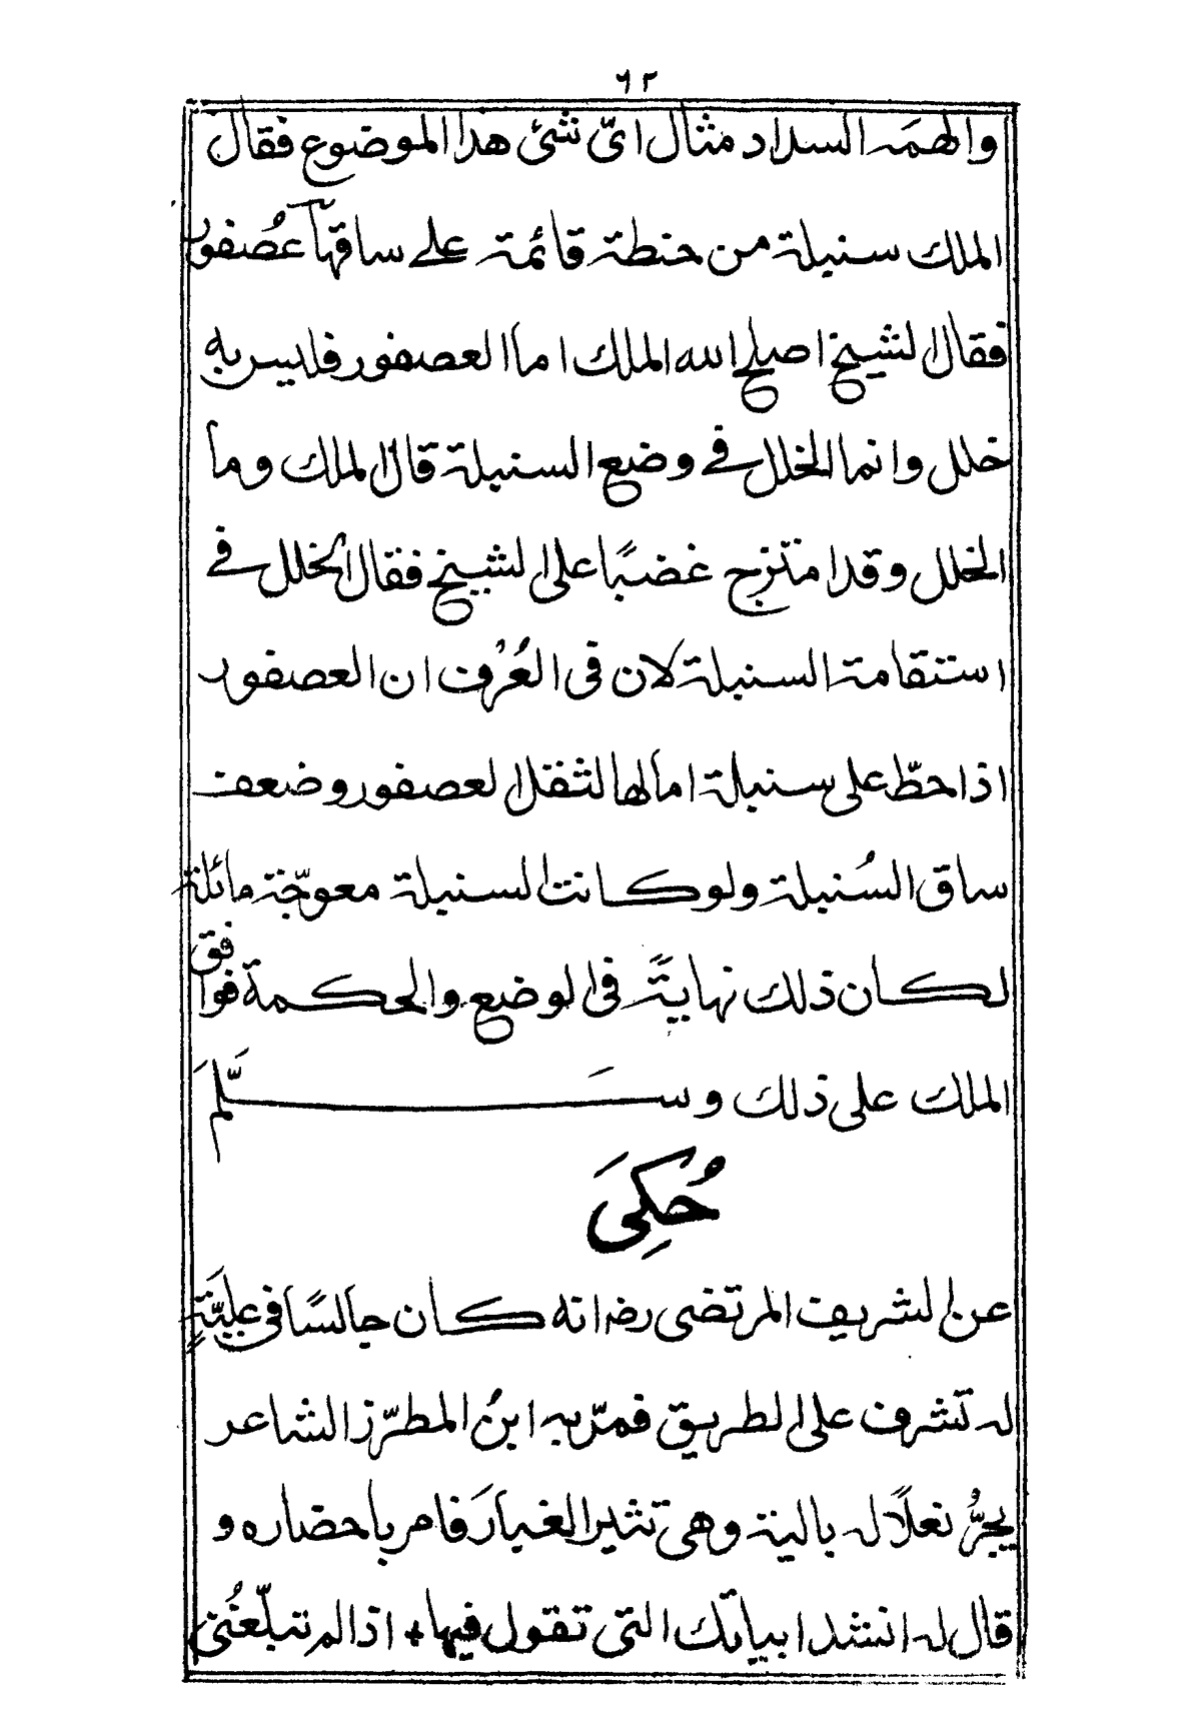 ٦٢
والهمَه السداد مثال اىّ شئ هذا الموضوع فقال
الملك سنبلة من حنطة قائمة علے ساقها عُصفور
فقال الشيخ اصلح الله الملك اما العصفور فليس به
خلل وانما الخلل فے وضع السنبلة قال الملك وما
الخلل وقد امتزج غضبًا على الشيخ فقال الخلل فے
استقامة السنبلة لان فى العُرْف ان العصفور
اذا حطّ على سنبلة امالها لثقل العصفور وضعف
ساق السُنبلة ولو كانت السنبلة معوجّة مائلة
لكان ذلك نهايةً فى الوضع والحكمة فوافق
الملك على ذلك وسَلَّمَ
حُكِىَ
عن الشريف المرتضى رضه انه كان جالسًا فى عليّةٍ
له تشرف على الطريق فمرّ به ابنُ المطرّز الشاعر
يجرُّ نعلًا له بالية وهى تثير الغبارَ فامر باحضاره و
قال له انشد ابياتك التى تقول فيها ٭ اذا لم تبلّغنُى